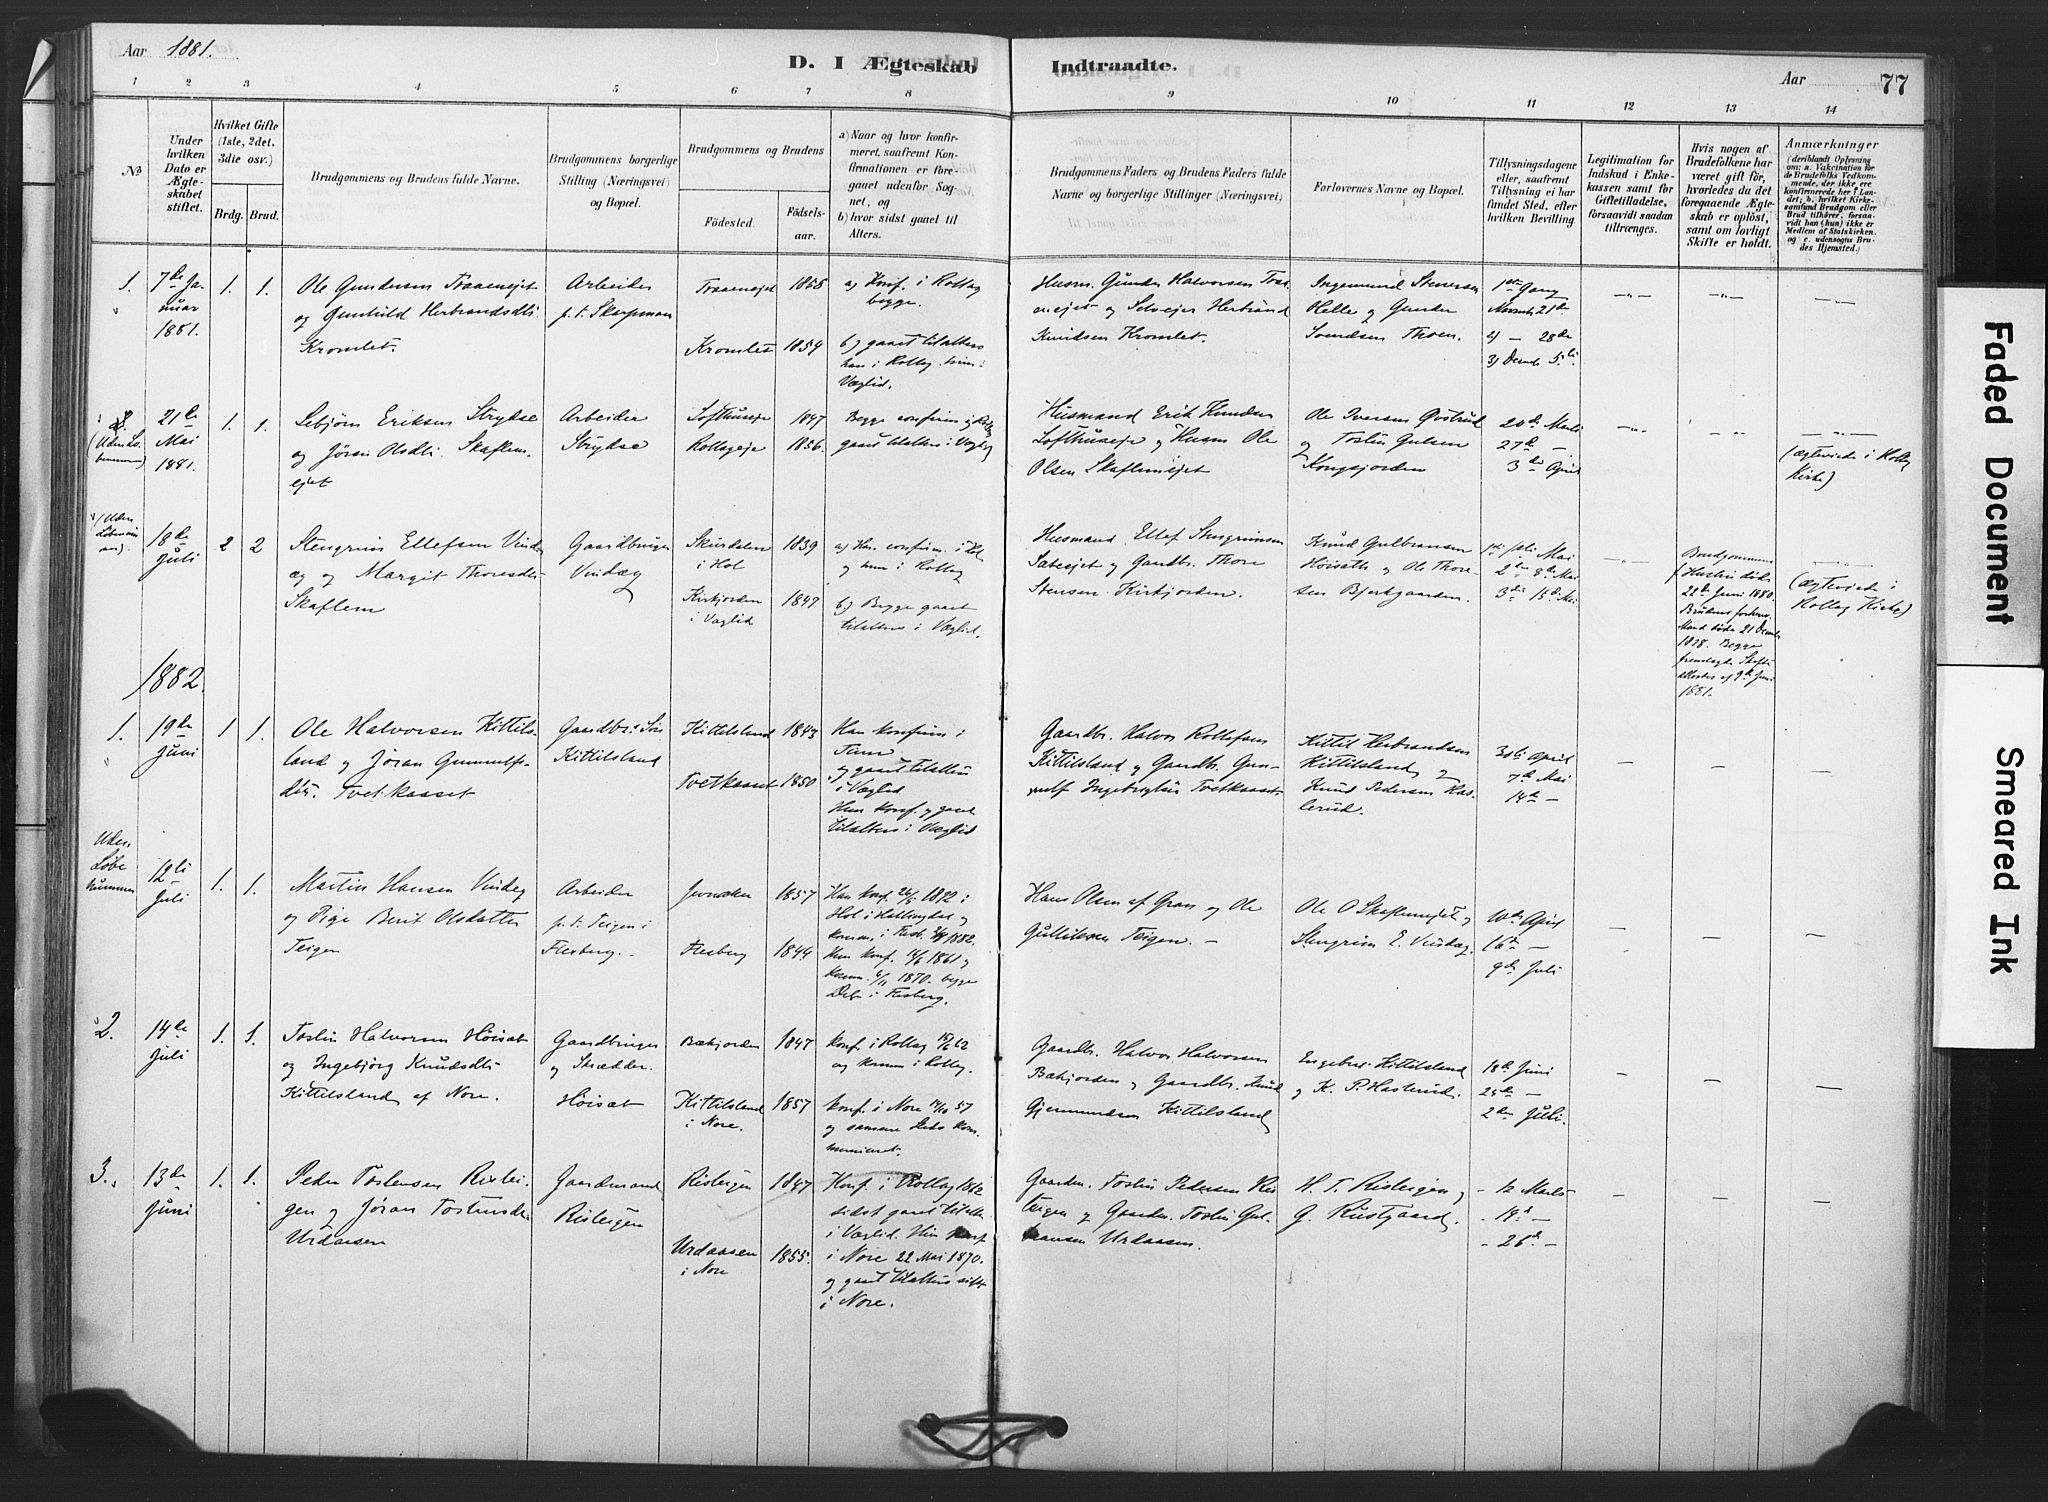 Aar 1881.
D. I Ægteskab
Indtraadte.
Aar
77
1
2
3
4
5
6
7
8
9
10
11
12
13
14
No
Under
hvilken
Dato er
Ægte-
skabet
stiftet.
Hvilket Gifte
(1ste, 2det,
3die osv.)
Brdg.
Brud.
Brudgommens og Brudens fulde Navne.
Brudgommens borgerlige
Stilling (Næringsvei)
og Bopæl.
Brudgommens og Brudens
Födested.
Födsels-
aar.
a) Naar og hvor konfir-
meret, saafremt Kon-
firmationen er fore-
gaaet udenfor Sog-
net, og
b) hvor sidst gaaet til
Alters.
Brudgommens Faders og Brudens Faders fulde
Navne og borgerlige Stillinger (Næringsvei)
Forlovernes Navne og Bopæl.
Tillysningsdagene
eller, saafremt
Tillysning ei har
fundet Sted, efter
hvilken Bevilling.
Legitimation for
Indskud i Enke-
kassen samt for
Giftetilladelse,
forsaavidt saadan
tiltrænges.
Hvis nogen af
Brudefolkene har
været gift för,
hvorledes da det
foregaaende Ægte-
skab er oplöst,
samt om lovligt
Skifte er holdt.
Anmærkninger
(deriblandt Oplysning
om: a. Vakcination for
de Brudefolks Vedkom-
mende, der ikke ere
konfirmerede her i Lan-
det; b. hvilket Kirke-
samfund Brudgom eller
Brud tilhörer, forsaa-
vidt han (hun) ikke er
Medlem af Statskirken
og c. udensogns Bru-
des Hjemsted.)
1.
7de Ja-
nuar
1881.
1.
1.
Ole Gundersen Traaenejet
og Gunhild Herbrandsdtr.
Kromlet.
Arbeider
p. t. Skarpmoen
Traaenejet
1855
Kromlet
1854
a) Konf. i Rollag
begge.
b) gaaet tilalters
han i Rollag hun i
Væglid.
Husm. Gunder Halvorsen Traa-
enejet og Selvejer Herbrand
Knudsen Kromlet.
Ingemund Steversen
Helle og Gunder
Svendsen Thoen.
1ste Gang
Novemb 21de
2) — 28de
3) Decemb 5te
2.
(Uden Lø-
benummer)
21de
Mai
1881.
1.
1.
Sebjørn Eriksen Strykse
og Jøran Olsdtr. Skaflem-
ejet
Arbeider
Strykse
Lofthuseje
1847
Rollageje
1856.
Begge confirm. i Rollag
gaaet tilalters i Væglid
Husmand Erik Knudsen
Lofthuseje og Husm Ole
Olsen Skaflemejet
Ole Iversen Qvstrud
og Tostin Gulsen
Kongsjorden
20de Marts
27de —
3de April
(ægteviede i Rollag
Kirke)
(Uden
Løbenum-
mer).
18de
Juli
2
2
Stengrim Ellefsen Vinde-
æg og Margit Thoresdtr
Skaflem
Gaardbruger
Vindeg
Skurdalen
i Hol
1839
Kirkjorden
i Væglid
1847
a) Han confirm. i Hol
og hun i Rollag
b) Begge gaaet
tilalters i Væglid.
Husmand Ellef Stengrimsen
Sateejet og Gaardb. Thore
Stensen Kirkjorden.
Knud Gulbransen
Høisæth og Ole Thore-
sen Bjerkgaarden.
1ste Mai
2den 8de Mai
3die 15de Mai
Brudgommens
f. Hustru døde
21de Juni 1880.
Brudens forhen
Mand døde 21 Decemb
1878. Begge
fremlagde Skifte-
attester af 9de Juni
1881.
(ægteviede i
Rollag Kirke)
1882.
1.
19de
Juni
1
1.
Ole Halvorsen Kittils-
land og Jøran Gunnulfs-
dtr. Tvetkasset
Gaardbr. Søn
Kittilsland
Kittilsland
1843
Tvetkasset
1850
Han konfirm i
Tinn
og gaaet tilalters
i Væglid
Hun konf. og gaaet
tilalters i Væglid
Gaardb. Halvor Rollefsen
Kittilsland og Gaardb. Gun-
nulf Ingebrigtsen Tvetkasset
Kittil Herbrandsen
Kittilsland og
Knud Pedersen Has-
lerud.
30te April
7de Mai
14de —
Uden
Løbe
nummer
12te
Juli
1.
1.
Martin Hansen Vindeg
og Pige Berit Olsdatter
Teigen
Arbeider
p. t. Teigen i
Flesberg.
1857
Flesberg
1844
Han konf. 26/5 1872 i
Hol i Hallingdal og
komm. i Flesb. 1882.
Hun konf. 1861 og
komm. 1870. begge
Dele i Flesberg.
Hans Olsen af Gran og Ole
Gulliksen Teigen. —
Ole O Skaflemejet og
Stengrim E. Vindeg
10de April
16de —
9de Juli
2.
14de
Juli
1.
1.
Tostin Halvorsen Høisæt
og Ingebjørg Knudsdtr
Kittilsland af Nore.
Gaardbruger
og Skrædder.
Høisæt
Bækjorden
1847
Kittilsland
i Nore.
1857
Konf. i Rollag 15/6 62
og komm i Rollag.
Konf. i Nore
og samme Steds kom-
municeret.
Gaardb. Halvor Halvorsen
Bækjorden og Gaardb. Knud
Gjermundsen Kittilsland
Engebret Kittilsland
og K. P. Haslerud.
18de Juni
25de —
2den Juli.
3.
13de
Juni
1.
1.
Peder Tostensen Ristei-
gen og Jøran Tostensdtr
Urdaasen
Gaardmand
Risteigen
Risteigen
1847
Urdaasen
i Nore
1855.
Konf. i Rollag 1862
sidst gaaet tilalters
i Væglid. Hun konf.
i Nore 22 Mai 1870.
og gaaet tilalters sidst
i Nore.
Gaardm. Tostin Pedersen Ris-
teigen og Gaardm. Tostin Gul-
bransen Urdaasen.
H. T. Risteigen og
G. Rustgaard.
- 12 Marts
- 19de —
- 26de —
Faded Document
Smeared Ink